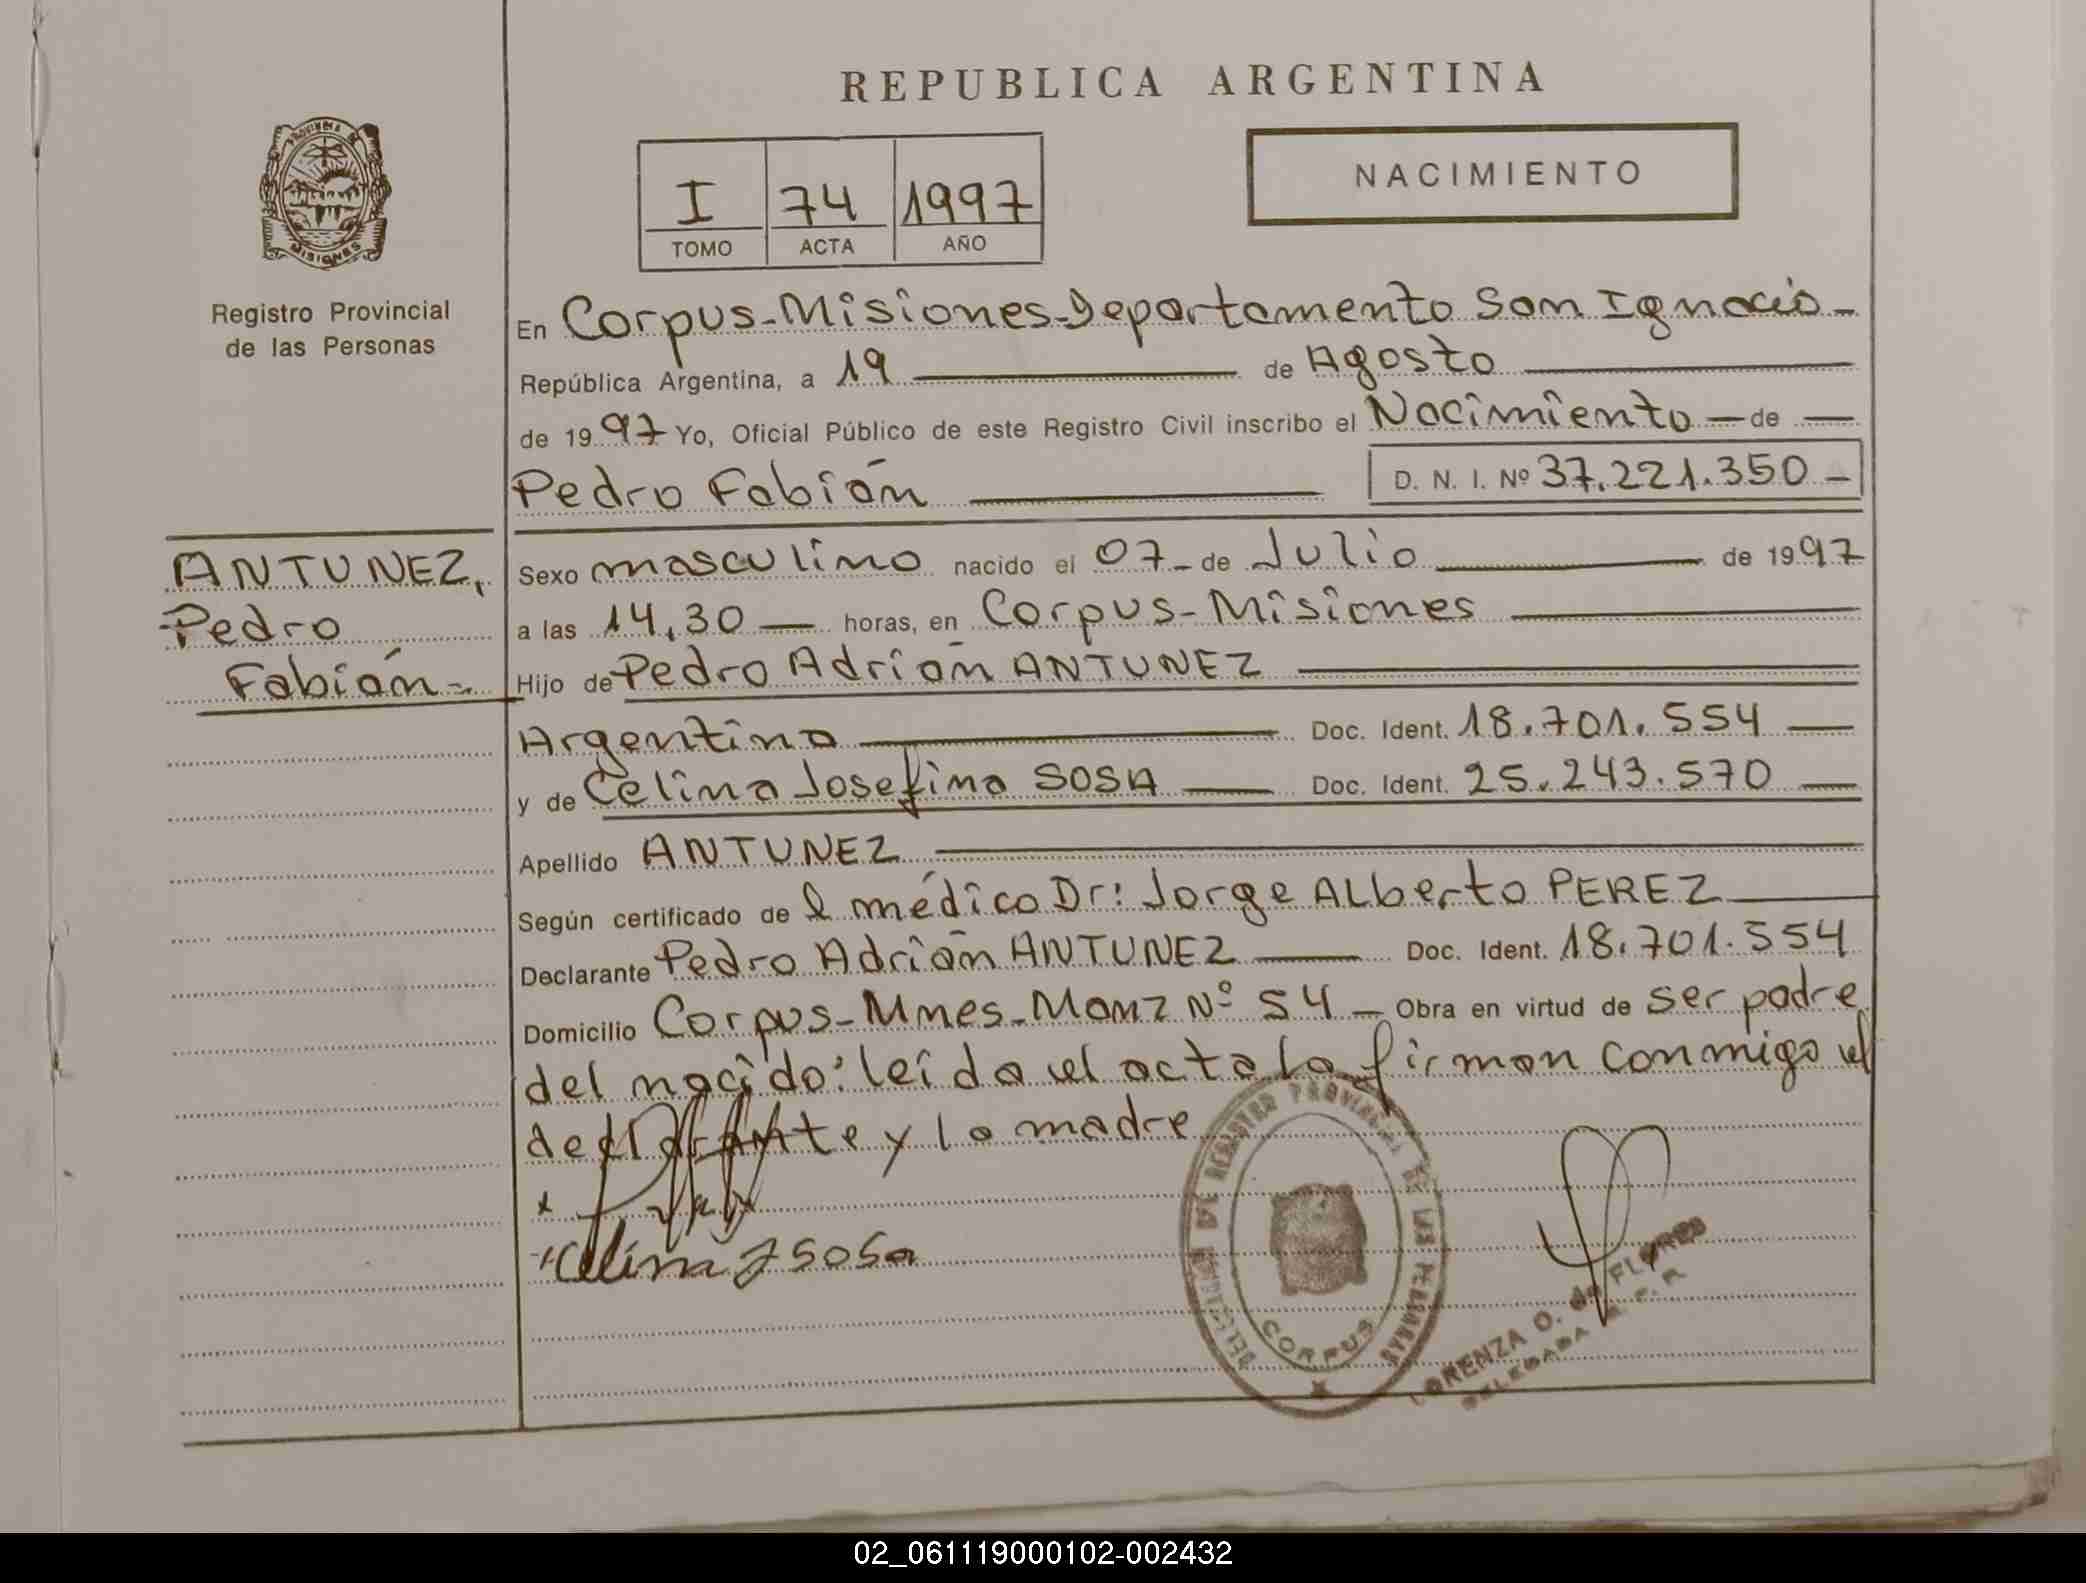 REPUBLICA ARGENTINA
PROVINCIA DE
MISIONES
Registro Provincial
de las Personas
I 74 1997
TOMO ACTA AÑO
NACIMIENTO
En Corpus-Misiones-Departamento San Ignacio-
República Argentina, a 19 de Agosto
de 1997 Yo, Oficial Público de este Registro Civil inscribo el Nacimiento - de -
Pedro Fabián D. N. I. Nº 37.221.350 -
ANTUNEZ,
Pedro
Fabián-
Sexo masculino nacido el 07- de Julio de 1997
a las 14,30 - horas, en Corpus-Misiones
Hijo de Pedro Adrián ANTUNEZ
Argentina Doc. Ident. 18.701.554 -
y de Celina Josefina SOSA - Doc. Ident. 25.243.570 -
Apellido ANTUNEZ
Según certificado de l médico Dr: Jorge Alberto PEREZ
Declarante Pedro Adrián ANTUNEZ - Doc. Ident. 18.701.554
Domicilio Corpus-Mnes-Manz Nº 54 - Obra en virtud de ser padre
del nacido: leída el acta la firman conmigo el
declarante y la madre
Celina J Sosa
DELEGACION DE REGISTRO PROVINCIAL DE LAS PERSONAS
CORPUS
LORENZA O. de FLORES
DELEGADA
02_061119000102-002432